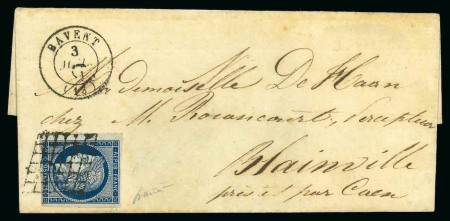 BAVENT
3
JUIL
51
(13)
Mademoiselle De Haan
chez M. Rocancourt, Percepteur
Blainville
près et par Caen
REPUB FRANC